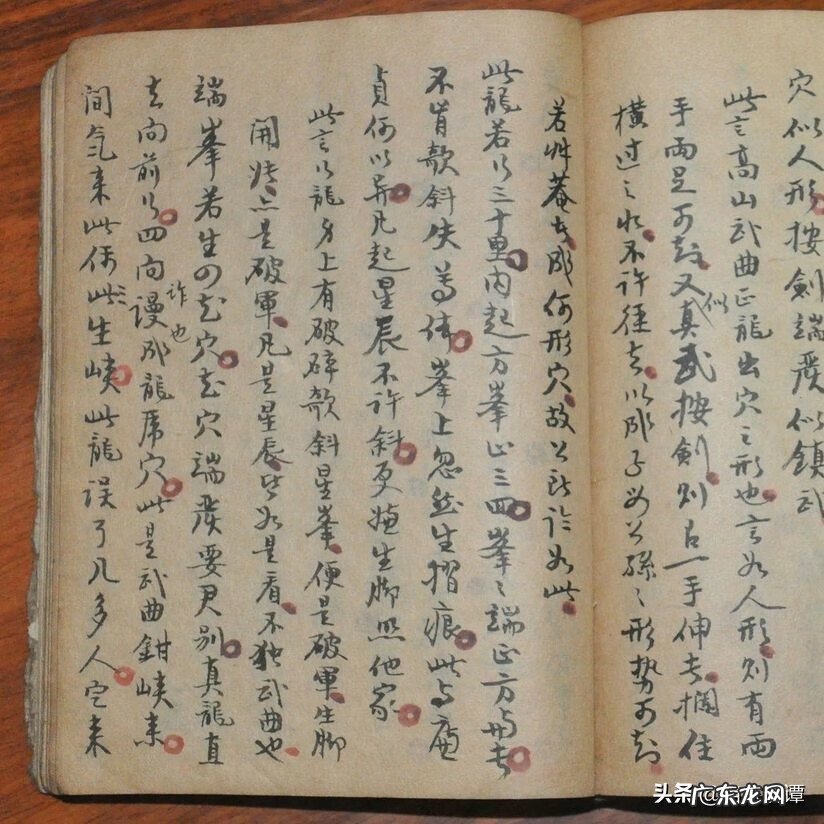 穴似人形按劍端嚴似鎮武
此言高山武曲正龍出穴之形也言如人形則有兩
手兩足可知又似真武按劍則呂一手伸去攔住
橫過之水不許徑去以成子母公孫之形勢可知
若性菴去成何形穴故公既許如此
此龍若行三十里內起方峯止三四峯峯端正方與去
不肯欹斜失尊体峯上忽然生摺痕此与廉
貞何以異凡起星辰不許斜更嫌生腳照他家
此言行龍身上有破碎欹斜星峯便是破軍生腳
開恠亦是破軍凡是星辰皆如是看不独武曲也
端峯若生四花穴花穴端嚴要君別真龍直
去向前行四向謾成龍虎穴此是武曲鉗峽來
詐也
間氣來此偶此生峽此龍誤了几多人定來
头条 @东龙网谭
广东龙网